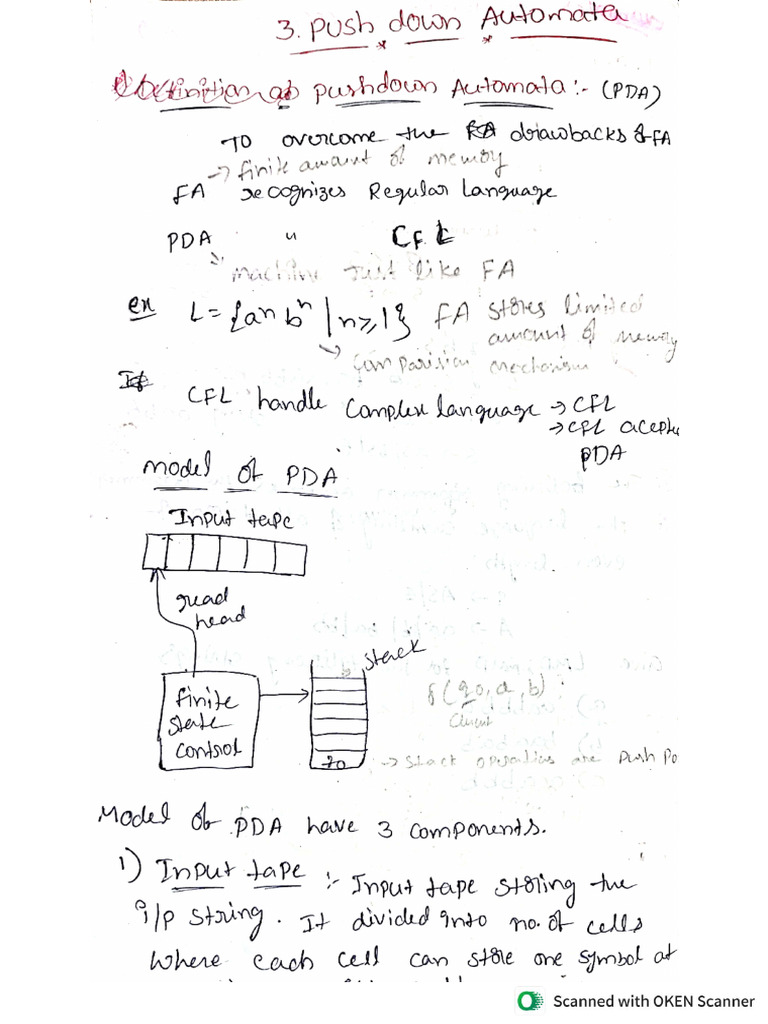 3. Push down Automata
Definition of pushdown Automata :- (PDA)
To overcome the FA drawbacks of FA
→ finite amount of memory
FA recognizes Regular Language
PDA " CFL
machine Just like FA
ex L = {aⁿ bⁿ | n ≥ 1} FA stores limited
amount of memory
→ Comparision mechanism
CFL handle Complex language → CFL
→ CFL acepte
PDA
Model of PDA
Input tape
read
head
stack
finite
state
control
δ(q0, a, b)
z0
→ Stack operations are Push Po
Model of PDA have 3 components.
1) Input tape :- Input tape storing the
i/p string. It divided into no. of cells
where each cell can store one symbol at
Scanned with OKEN Scanner